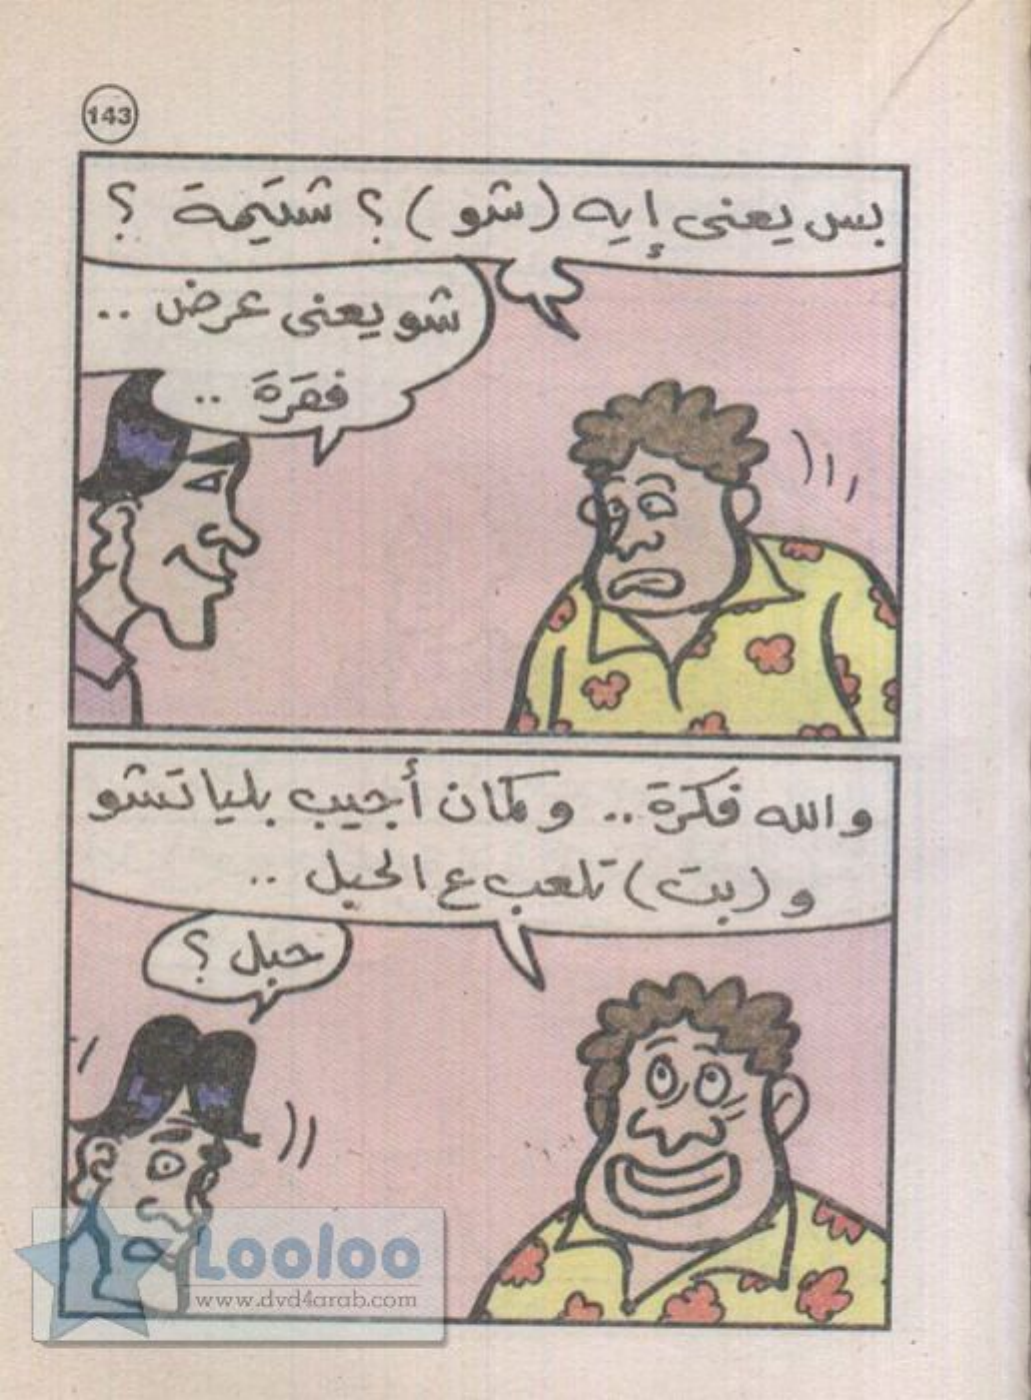 143
بس يعنى إيه (شو) ؟ شتيمة ؟
شو يعنى عرض ..
فقرة ..
والله فكرة .. وكمان أجيب بلياتشو
و (بت) تلعب ع الحبل ..
حبل ؟
Looloo
www.dvd4arab.com